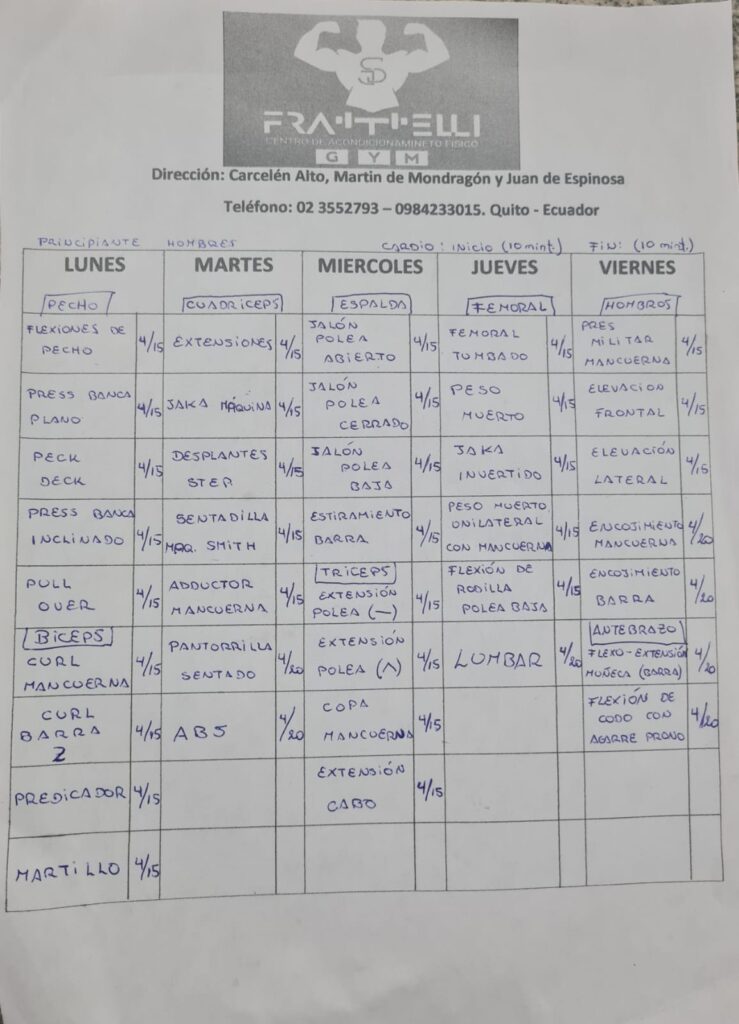 SD
FRATTELLI
CENTRO DE ACONDICIONAMINETO FISICO
GYM
Dirección: Carcelén Alto, Martin de Mondragón y Juan de Espinosa
Teléfono: 02 3552793 – 0984233015. Quito - Ecuador
PRINCIPIANTE HOMBRES CARDIO: INICIO (10 mint.) FIN: (10 mint.)
LUNES
PECHO
FLEXIONES DE
PECHO 4/15
PRESS BANCA
PLANO 4/15
PECK
DECK 4/15
PRESS BANCA
INCLINADO 4/15
PULL
OVER 4/15
BICEPS
CURL
MANCUERNA 4/15
CURL
BARRA 4/15
Z
PREDICADOR 4/15
MARTILLO 4/15
MARTES
CUADRICEPS
EXTENSIONES 4/15
JAKA MÁQUINA 4/15
DESPLANTES
STEP 4/15
SENTADILLA
MAQ. SMITH 4/15
ADDUCTOR
MANCUERNA 4/15
PANTORRILLA
SENTADO 4/20
ABS 4/20
MIERCOLES
ESPALDA
JALÓN
POLEA
ABIERTO 4/15
JALÓN
POLEA
CERRADO 4/15
JALÓN
POLEA
BAJA 4/15
ESTIRAMIENTO
BARRA 4/15
TRICEPS
EXTENSIÓN
POLEA (—) 4/15
EXTENSIÓN
POLEA (^) 4/15
COPA
MANCUERNA 4/15
EXTENSIÓN
CABO 4/15
JUEVES
FEMORAL
FEMORAL
TUMBADO 4/15
PESO
MUERTO 4/15
JAKA
INVERTIDO 4/15
PESO MUERTO
UNILATERAL
CON MANCUERNA 4/15
FLEXIÓN DE
RODILLA
POLEA BAJA 4/15
LUMBAR 4/20
VIERNES
HOMBROS
PRES
MILITAR
MANCUERNA 4/15
ELEVACION
FRONTAL 4/15
ELEVACIÓN
LATERAL 4/15
ENCOJIMIENTO
MANCUERNA 4/20
ENCOJIMIENTO
BARRA 4/20
ANTEBRAZO
FLEXO-EXTENSIÓN
MUÑECA (BARRA) 4/20
FLEXIÓN DE
CODO CON
AGARRE PRONO 4/20